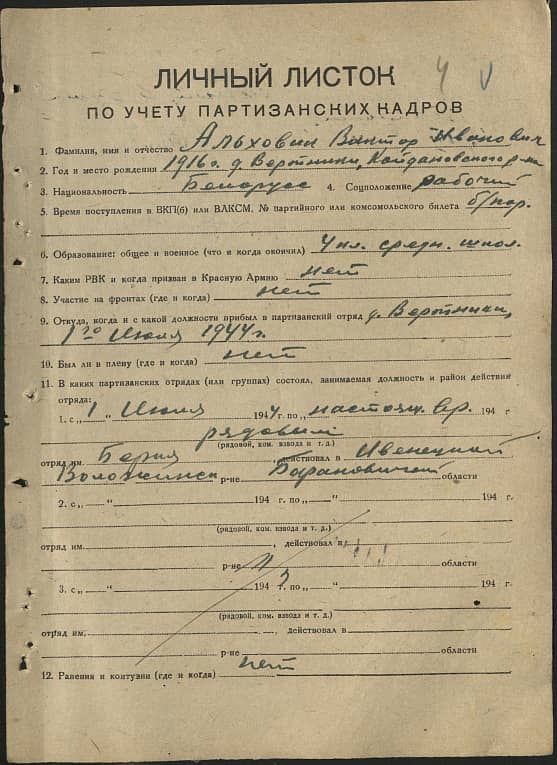 4 V
ЛИЧНЫЙ ЛИСТОК
ПО УЧЕТУ ПАРТИЗАНСКИХ КАДРОВ
1. Фамилия, имя и отчество Альхович Виктор Иванович
2. Год и место рождения 1916 г. д. Веротники, Койдановского р-на
3. Национальность Беларусс 4. Соцположение рабочий
5. Время поступления в ВКП(б) или ВЛКСМ, № партийного или комсомольского билета б/пар.
6. Образование: общее и военное (что и когда окончил) 4 кл. средн. школ.
7. Каким РВК и когда призван в Красную Армию нет
8. Участие на фронтах (где и когда) нет
9. Откуда, когда и с какой должности прибыл в партизанский отряд д. Веротники,
1го Июля 1944 г.
10. Был ли в плену (где и когда) нет
11. В каких партизанских отрядах (или группах) состоял, занимаемая должность и район действия
отряда:
1. с „1" Июля 1944 г. по „настоящ. вр. 194 г
рядовым
(рядовой, ком. взвода и т. д.)
отряд им. Берия, действовал в Ивенецкий
Воложинск р-не Барановичской области
2. с „ " 194 г. по „ " 194 г.
(рядовой, ком. взвода и т. д.)
отряд им. , действовал в
р-не области
3. с „ " 194 г. по „ " 194 г.
(рядовой, ком. взвода и т. д.)
отряд им. , действовал в
р-не области
12. Ранения и контузии (где и когда) нет